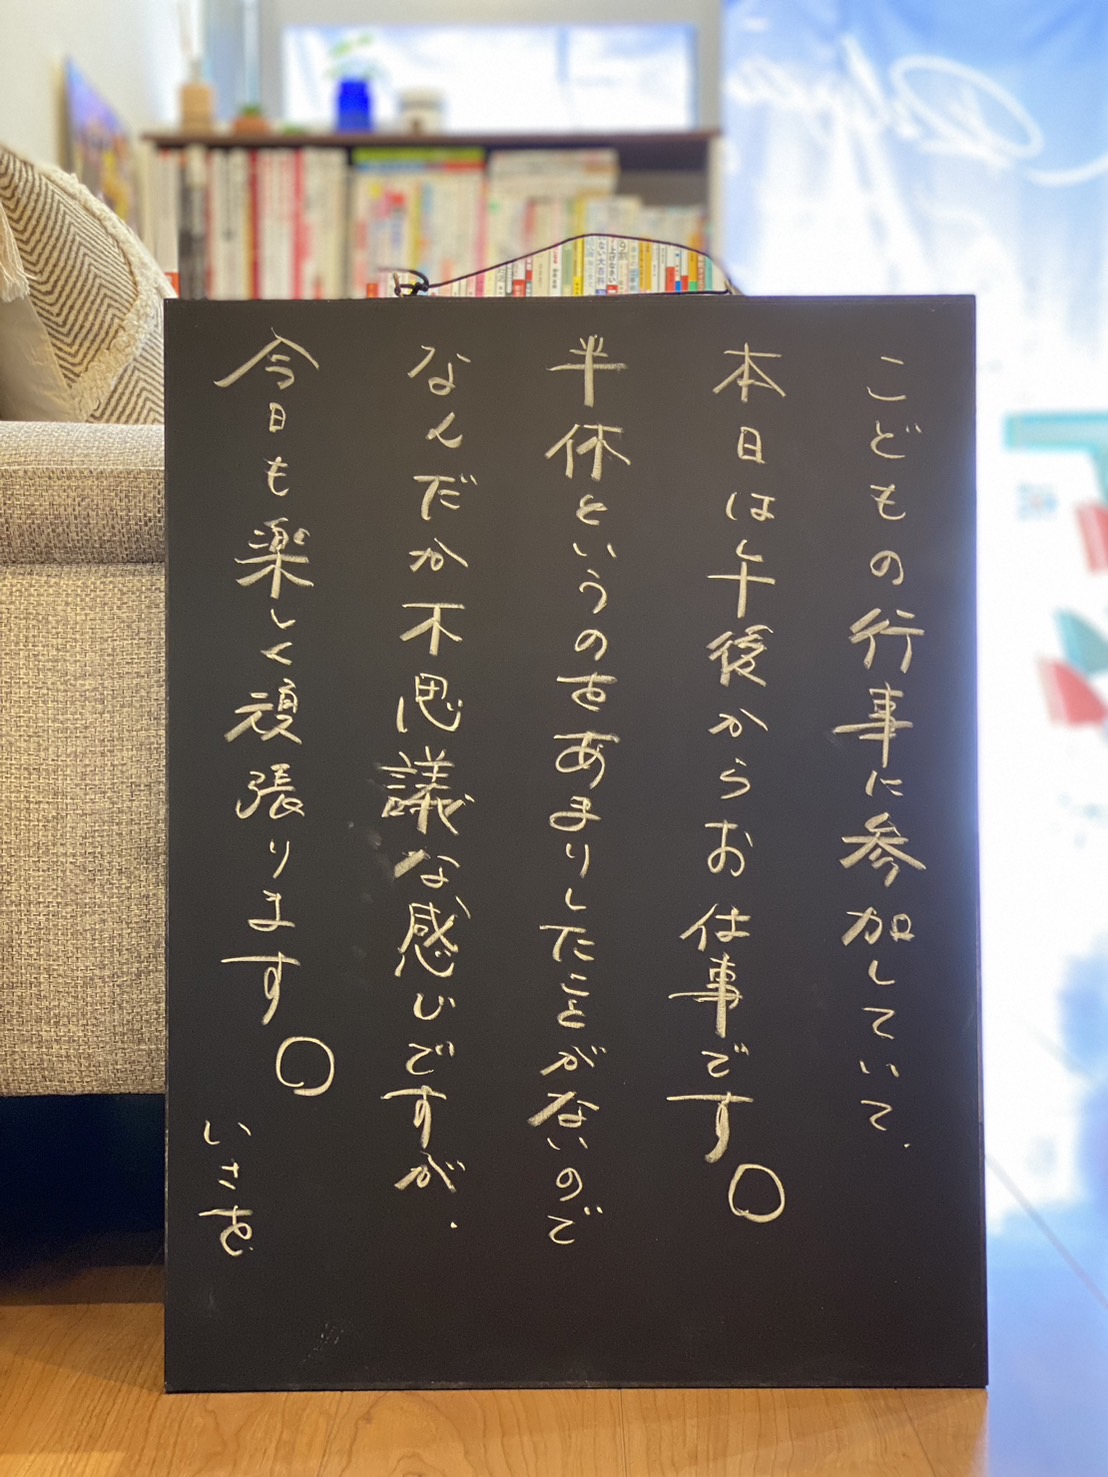 こどもの行事に参加していて、
本日は午後からお仕事です。
半休というのをあまりしたことがないので
なんだか不思議な感じですが、
今日も楽しく頑張ります。
いさを